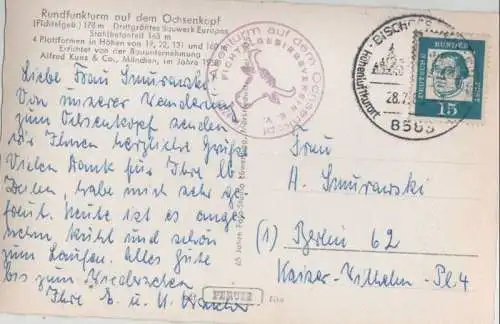 Rundfunkturm auf dem Ochsenkopf
(Fichtelgeb) 178 m Drittgrößtes Bauwerk Europas
Stahlbetonteil 163 m
4 Plattformen in Höhen von 19, 22, 131 und 160 m
Errichtet von der Bauunternehmung
Alfred Kunz & Co., München, im Jahre 1958
Liebe Frau Smurawski!
Von unserer Wanderung
zum Ochsenkopf senden
wir Ihnen herzliche Grüße
Vielen Dank für Ihre lb
Zeilen, habe mich sehr ge
freut. Heute ist es ange
nehm, kühl und schön
zum Laufen. Alles Gute
bis zum Wiedersehen
Ihre E. u. H.
auf dem Ochsenkopf
FICHTELGEBIRGSVEREIN E. V.
BISCHOFS
Höhenluftkurort
28.7.
8583
DEUTSCHE BUNDESPOST
15
65 Jahre Foto
Frau
H. Smurawski
(1) Berlin 62
Kaiser-Wilhelm-Pl 4
PERUTZ